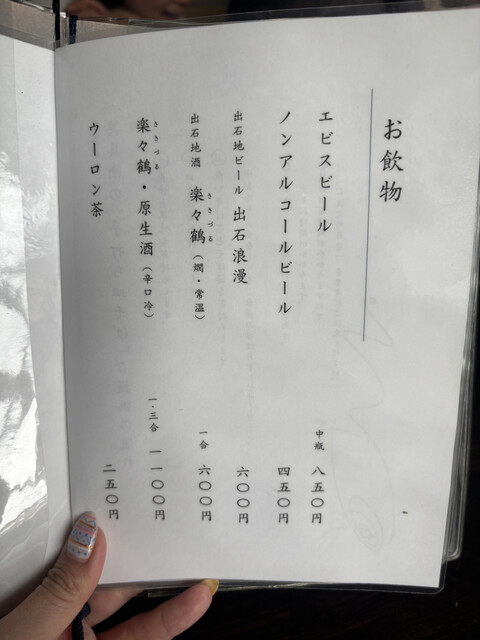 お飲物
エビスビール 中瓶 八五〇円
ノンアルコールビール 四五〇円
出石地ビール 出石浪漫 六〇〇円
出石地酒 楽々鶴（燗・常温） 一合 六〇〇円
ささづる
楽々鶴・原生酒（辛口冷） 一・三合 一一〇〇円
ささづる
ウーロン茶 二五〇円